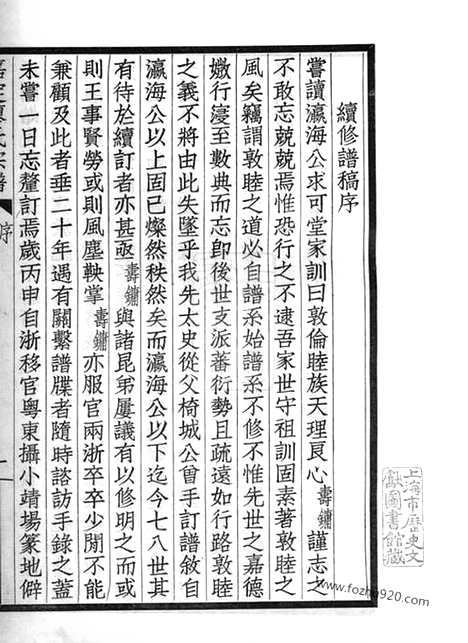 續修譜稿序
嘗讀瀛海公求可堂家訓曰敦倫睦族天理良心壽鏞謹志之
不敢忘兢兢焉惟恐行之不逮吾家世守祖訓固素著敦睦之
風矣竊謂敦睦之道必自譜系始譜系不修不惟先世之嘉德
媺行寖至數典而忘卽後世支派蕃衍勢且疏遠如行路敦睦
之義不將由此失墜乎我先太史從父椅城公曾手訂譜敘自
瀛海公以上固已燦然秩然矣而瀛海公以下迄今七八世其
有待於續訂者亦甚亟壽鏞與諸昆弟屢議有以修明之而或
則王事賢勞或則風塵鞅掌壽鏞亦服官兩浙卒卒少閒不能
兼顧及此者垂二十年遇有關繫譜牒者隨時諮訪手錄之蓋
未嘗一日忘釐訂焉歲丙申自浙移官粵東攝小靖場篆地僻
嘉定廖氏宗譜
序
一
上海市歷史文
獻圖書館藏
www.fozhu920.com